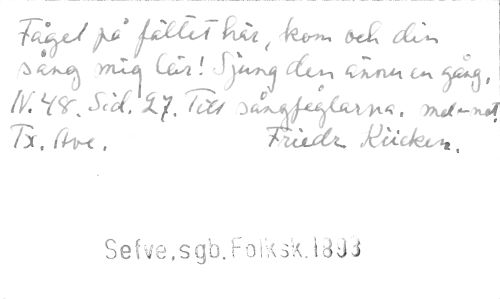 Fågel på fältet här, kom och din
sång mig lär! Sjung den ännu en gång.
N. 48. Sid. 27. Till sångfåglarna. mel. not.
Tx. Ave. Friedr. Kücken.
Sefve, sgb. Folksk. 1893